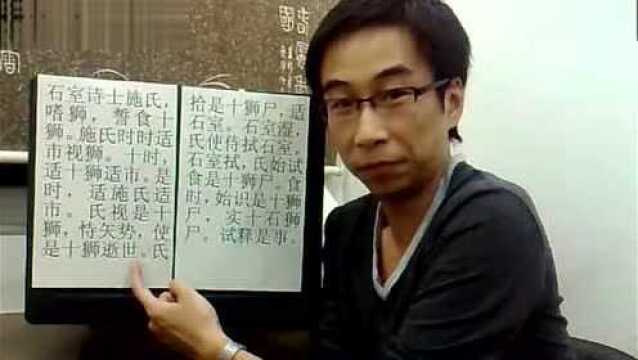 石室诗士施氏,
嗜狮,誓食十
狮。施氏时时适
市视狮。十时,
适十狮适市。是
时,适施氏适
市。氏视是十
狮,恃矢势,使
是十狮逝世。氏
拾是十狮尸,适
石室。石室湿,
氏使侍拭石室。
石室拭,氏始试
食是十狮尸。食
时,始识是十狮
尸,实十石狮
尸。试释是事。